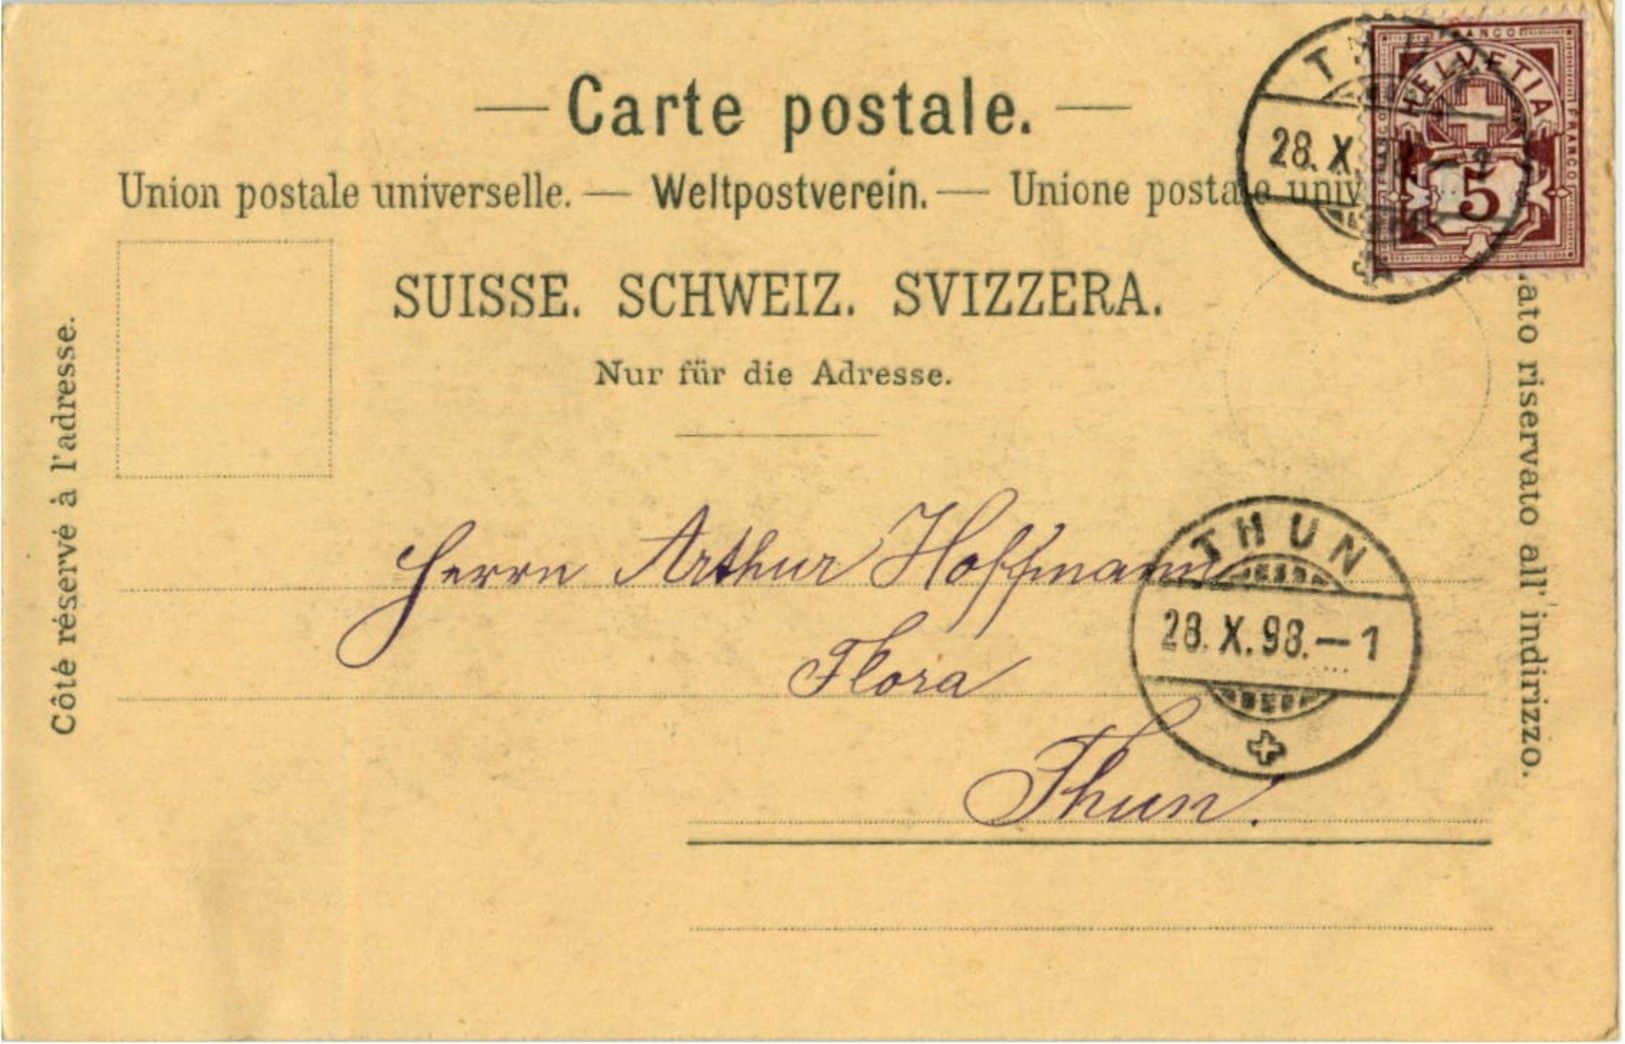 — Carte postale. —
Union postale universelle. — Weltpostverein. — Unione postale univ
SUISSE. SCHWEIZ. SVIZZERA.
Nur für die Adresse.
Côté réservé à l'adresse.
lato riservato all' indirizzo.
FRANCO
HELVETIA
FRANCO
5
THUN
28. X. 98. – 1
Herrn Arthur Hoffmann
Flora
Thun.
THUN
28. X. 98. – 1